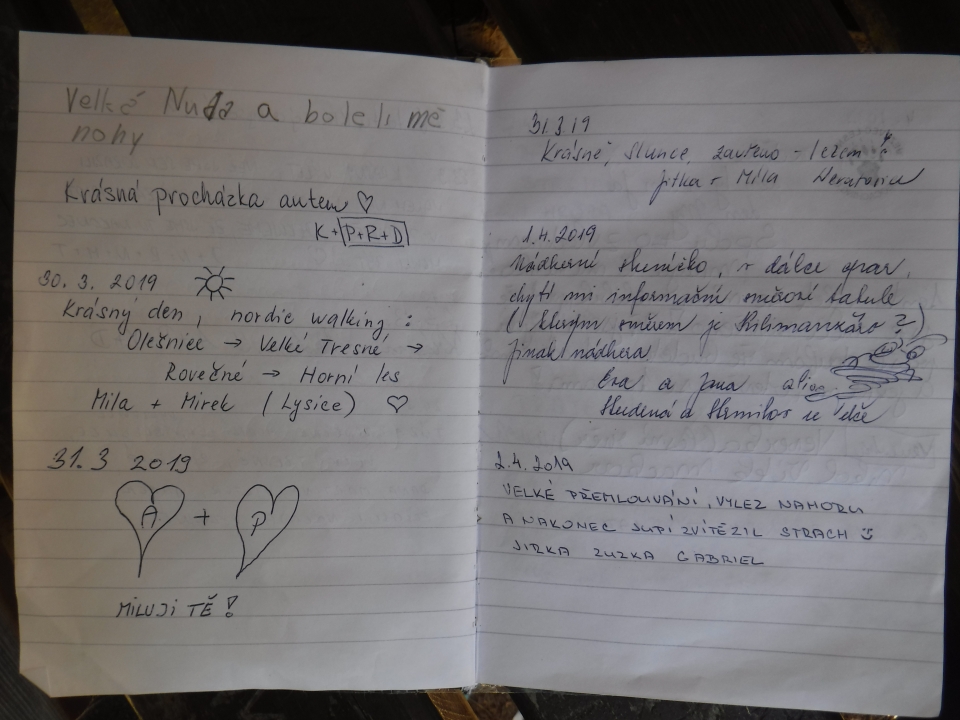 Velké Nuda a boleli mě
nohy
Krásná procházka autem
K+P+R+D
30. 3. 2019
Krásný den, nordic walking:
Olešnice → Velké Tresné →
Rovečné → Horní les
Mila + Mirek (Lysice)
31.3 2019
A + P
MILUJI TĚ!
31.3 19
Krásně, slunce, zavřeno - lezem
Jitka + Míla Neratovice
1.4. 2019
Nádherné sluníčko, v dálce opar,
chybí mi informační směrové tabule
(kterým směrem je Kilimanžáro?)
Jinak nádhera
Eva a Jana alias
Studená a
2.4. 2019
VELKÉ PŘEMLOUVÁNÍ, VYLEZ NAHORU
A NAKONEC ZVÍTĚZIL STRACH
JIRKA ZUZKA GABRIEL